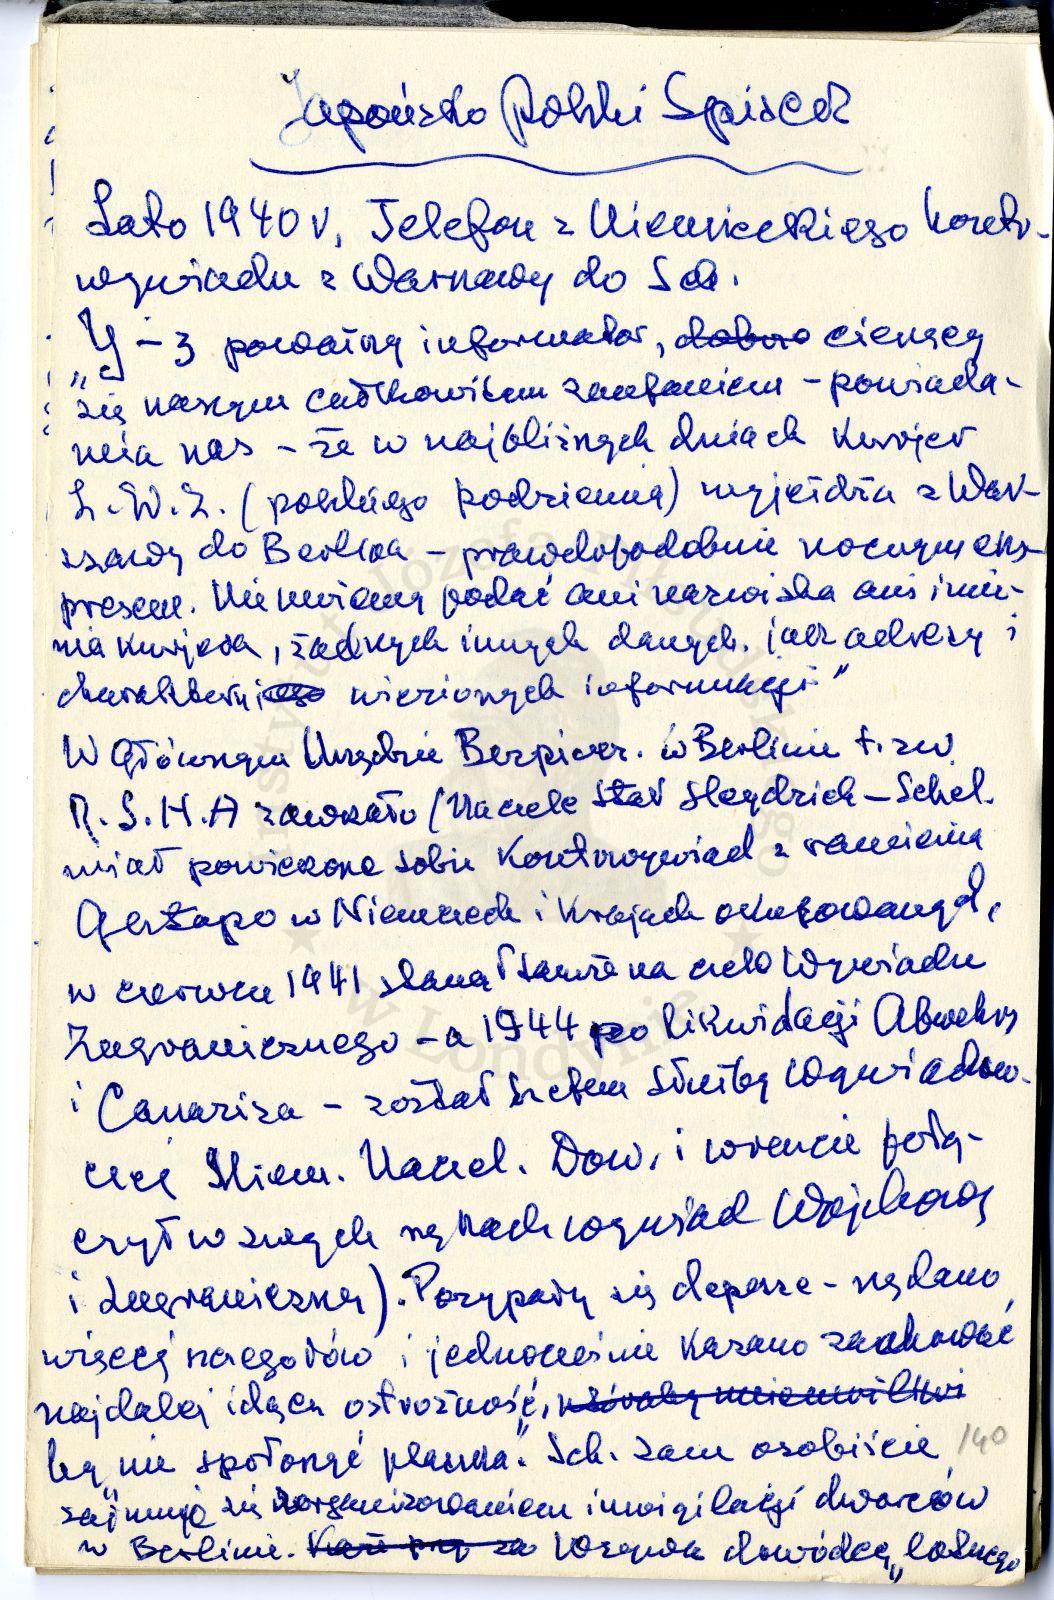 Japońsko Polski Spisek
Lato 1940 r, Telefon z Niemieckiego kontr-
wywiadu z Warszawy do Sch.
"Y-3 poważny informator, dobrze cieszący
się naszym całkowitem zaufaniem - powiada-
mia nas - że w najbliższych dniach kurjer
Z.W.Z. (polskiego podziemia) wyjeżdża z War-
szawy do Berlina - prawdopodobnie nocnym eks-
presem. Nie umiemy podać ani nazwiska ani imie-
nia kurjera, żadnych innych danych, jak adresy i
charakteru wiezionych informacji"
W Głównym Urzędzie Bezpiecz. w Berlinie t. zw
R.S.H.A zawrzało (Na czele stał Heydrich - Schel.
miał powierzone sobie Kontrwywiad z ramienia
Gestapo w Niemczech i Krajach okupowanych,
w czerwcu 1941 stanął także na czele Wywiadu
Zagranicznego - a 1944 po likwidacji Abwehry
i Canarisa - został szefem służby Wywiadow-
czej Niem. Naczel. Dow. i wreszcie połą-
czył w swych rękach wywiad Wojskowy
i zagraniczny). Posypały się depesze - żądano
więcej szczegółów i jednocześnie kazano zachować
najdalej idącą ostrożność,
by "nie spłoszyć ptaszka". Sch. sam osobiście
140
zajmuje się zorganizowaniem inwigilacji dworców
w Berlinie. Wzywa dowódcę "lotnego
Instytut Józefa Piłsudskiego
w Londynie